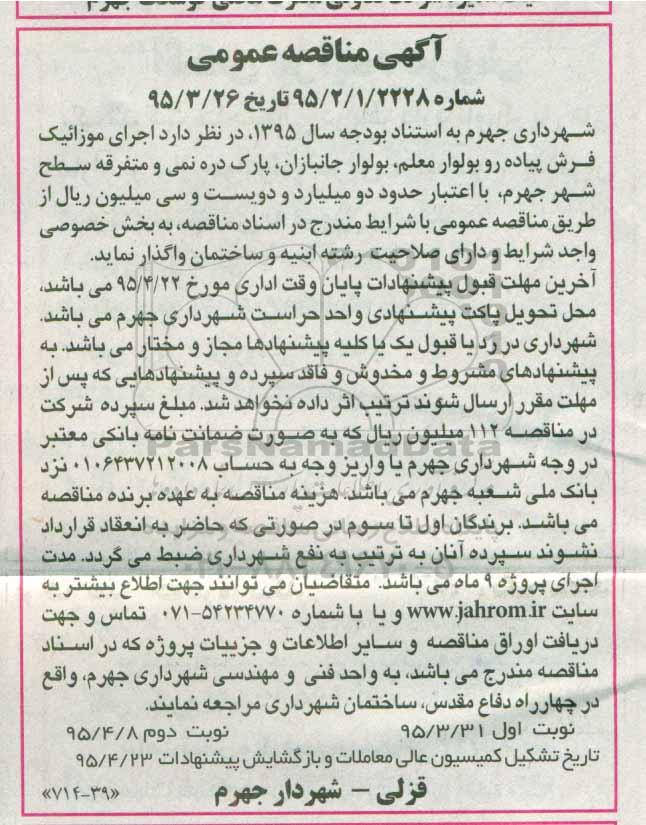 آگهی مناقصه عمومی
شماره ۹۵/۲/۱/۲۲۲۸ تاریخ ۹۵/۳/۲۶
شهرداری جهرم به استناد بودجه سال ۱۳۹۵، در نظر دارد اجرای موزائیک
فرش پیاده رو بولوار معلم، بولوار جانبازان، پارک دره نمی و متفرقه سطح
شهر جهرم، با اعتبار حدود دو میلیارد و دویست و سی میلیون ریال از
طریق مناقصه عمومی با شرایط مندرج در اسناد مناقصه، به بخش خصوصی
واجد شرایط و دارای صلاحیت رشته ابنیه و ساختمان واگذار نماید.
آخرین مهلت قبول پیشنهادات پایان وقت اداری مورخ ۹۵/۴/۲۲ می باشد،
محل تحویل پاکت پیشنهادی واحد حراست شهرداری جهرم می باشد.
شهرداری در رد یا قبول یک یا کلیه پیشنهادها مجاز و مختار می باشد. به
پیشنهادهای مشروط و مخدوش و فاقد سپرده و پیشنهادهایی که پس از
مهلت مقرر ارسال شوند ترتیب اثر داده نخواهد شد. مبلغ سپرده شرکت
در مناقصه ۱۱۲ میلیون ریال که به صورت ضمانت نامه بانکی معتبر
در وجه شهرداری جهرم یا واریز وجه به حساب ۰۱۰۶۴۳۷۲۱۲۰۰۸ نزد
بانک ملی شعبه جهرم می باشد. هزینه مناقصه به عهده برنده مناقصه
می باشد. برندگان اول تا سوم در صورتی که حاضر به انعقاد قرارداد
نشوند سپرده آنان به ترتیب به نفع شهرداری ضبط می گردد. مدت
اجرای پروژه ۹ ماه می باشد. متقاضیان می توانند جهت اطلاع بیشتر به
سایت www.jahrom.ir و یا با شماره ۵۴۲۳۴۷۷۰-۰۷۱ تماس و جهت
دریافت اوراق مناقصه و سایر اطلاعات و جزییات پروژه که در اسناد
مناقصه مندرج می باشد، به واحد فنی و مهندسی شهرداری جهرم، واقع
در چهارراه دفاع مقدس، ساختمان شهرداری مراجعه نمایند.
نوبت اول ۹۵/۳/۳۱ نوبت دوم ۹۵/۴/۸
تاریخ تشکیل کمیسیون عالی معاملات و بازگشایش پیشنهادات ۹۵/۴/۲۳
قزلی - شهردار جهرم «۷۱۴-۳۹»
ParsNamadData